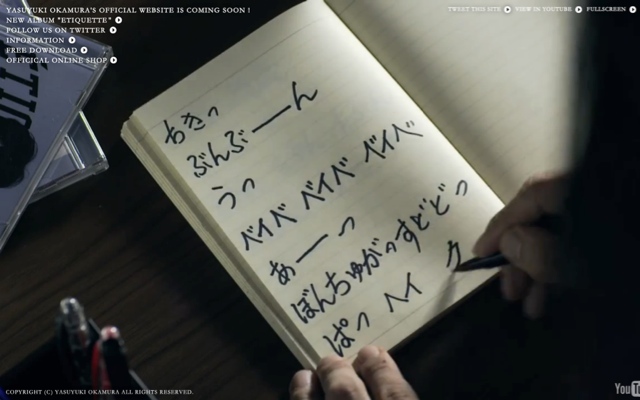 YASUYUKI OKAMURA'S OFFICIAL WEBSITE IS COMING SOON !
NEW ALBUM "ETIQUETTE"
FOLLOW US ON TWITTER
INFORMATION
FREE DOWNLOAD
OFFICICAL ONLINE SHOP
TWEET THIS SITE
VIEW IN YOUTUBE
FULLSCREEN
ちきっ
ぶんぶーーん
うっ
ベイベ ベイベ ベイベ
あーーっ
ぼんちゅがっすどどっ
ぱっ ヘイ ク
COPYRIGHT (C) YASUYUKI OKAMURA ALL RIGHTS RESERVED.